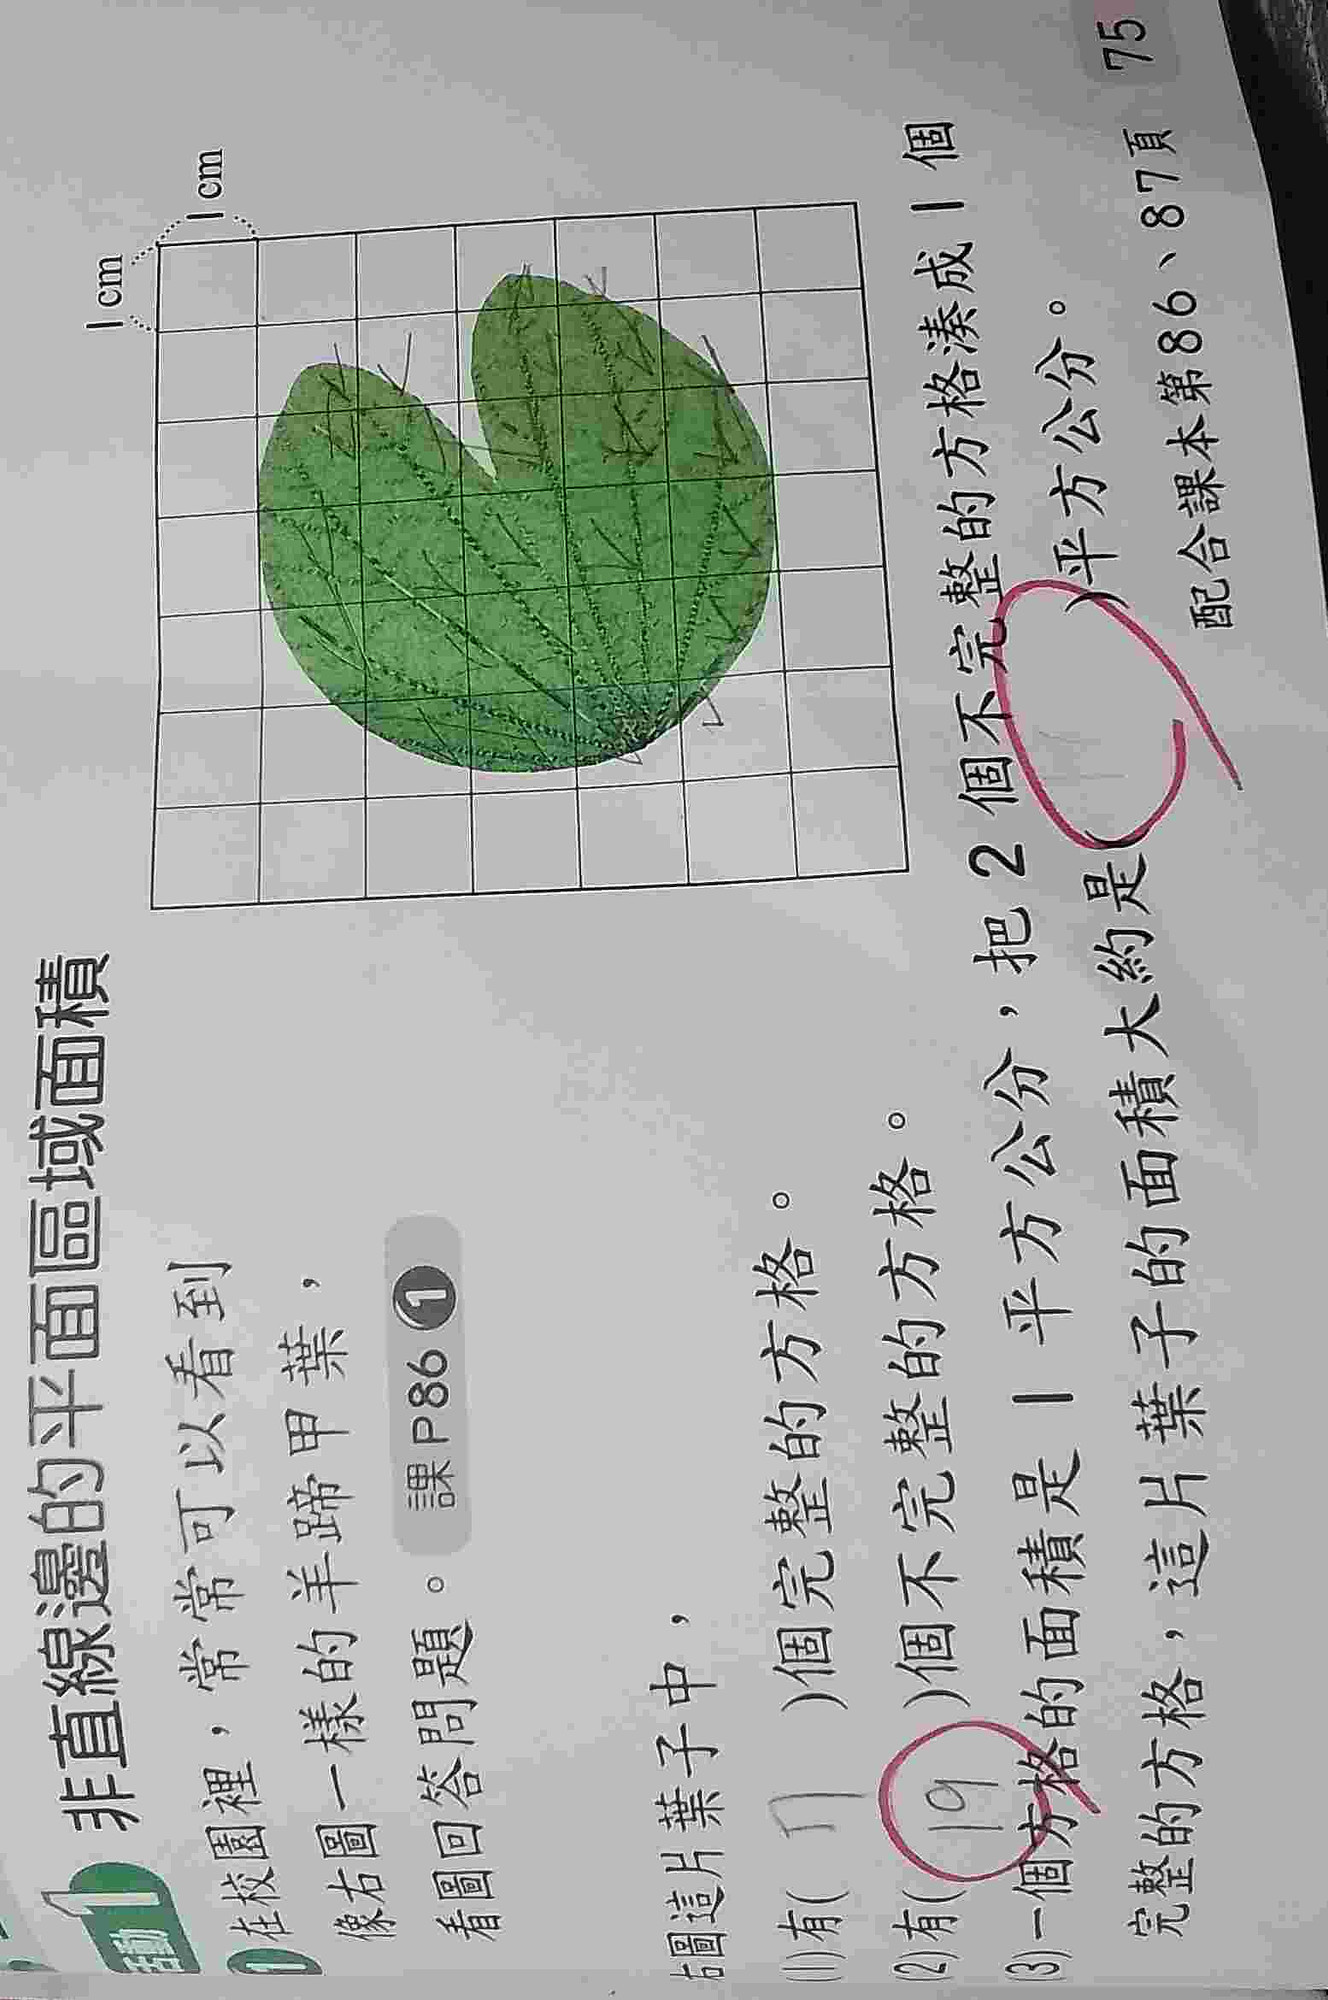 活動1 非直線邊的平面區域面積
1 在校園裡，常常可以看到
像右圖一樣的羊蹄甲葉，
看圖回答問題。 課P86 1
1cm
1cm
右圖這片葉子中，
(1)有( 7 )個完整的方格。
(2)有( 19 )個不完整的方格。
(3)一個方格的面積是1平方公分，把2個不完整的方格湊成1個
完整的方格，這片葉子的面積大約是( )平方公分。
配合課本第86、87頁 75